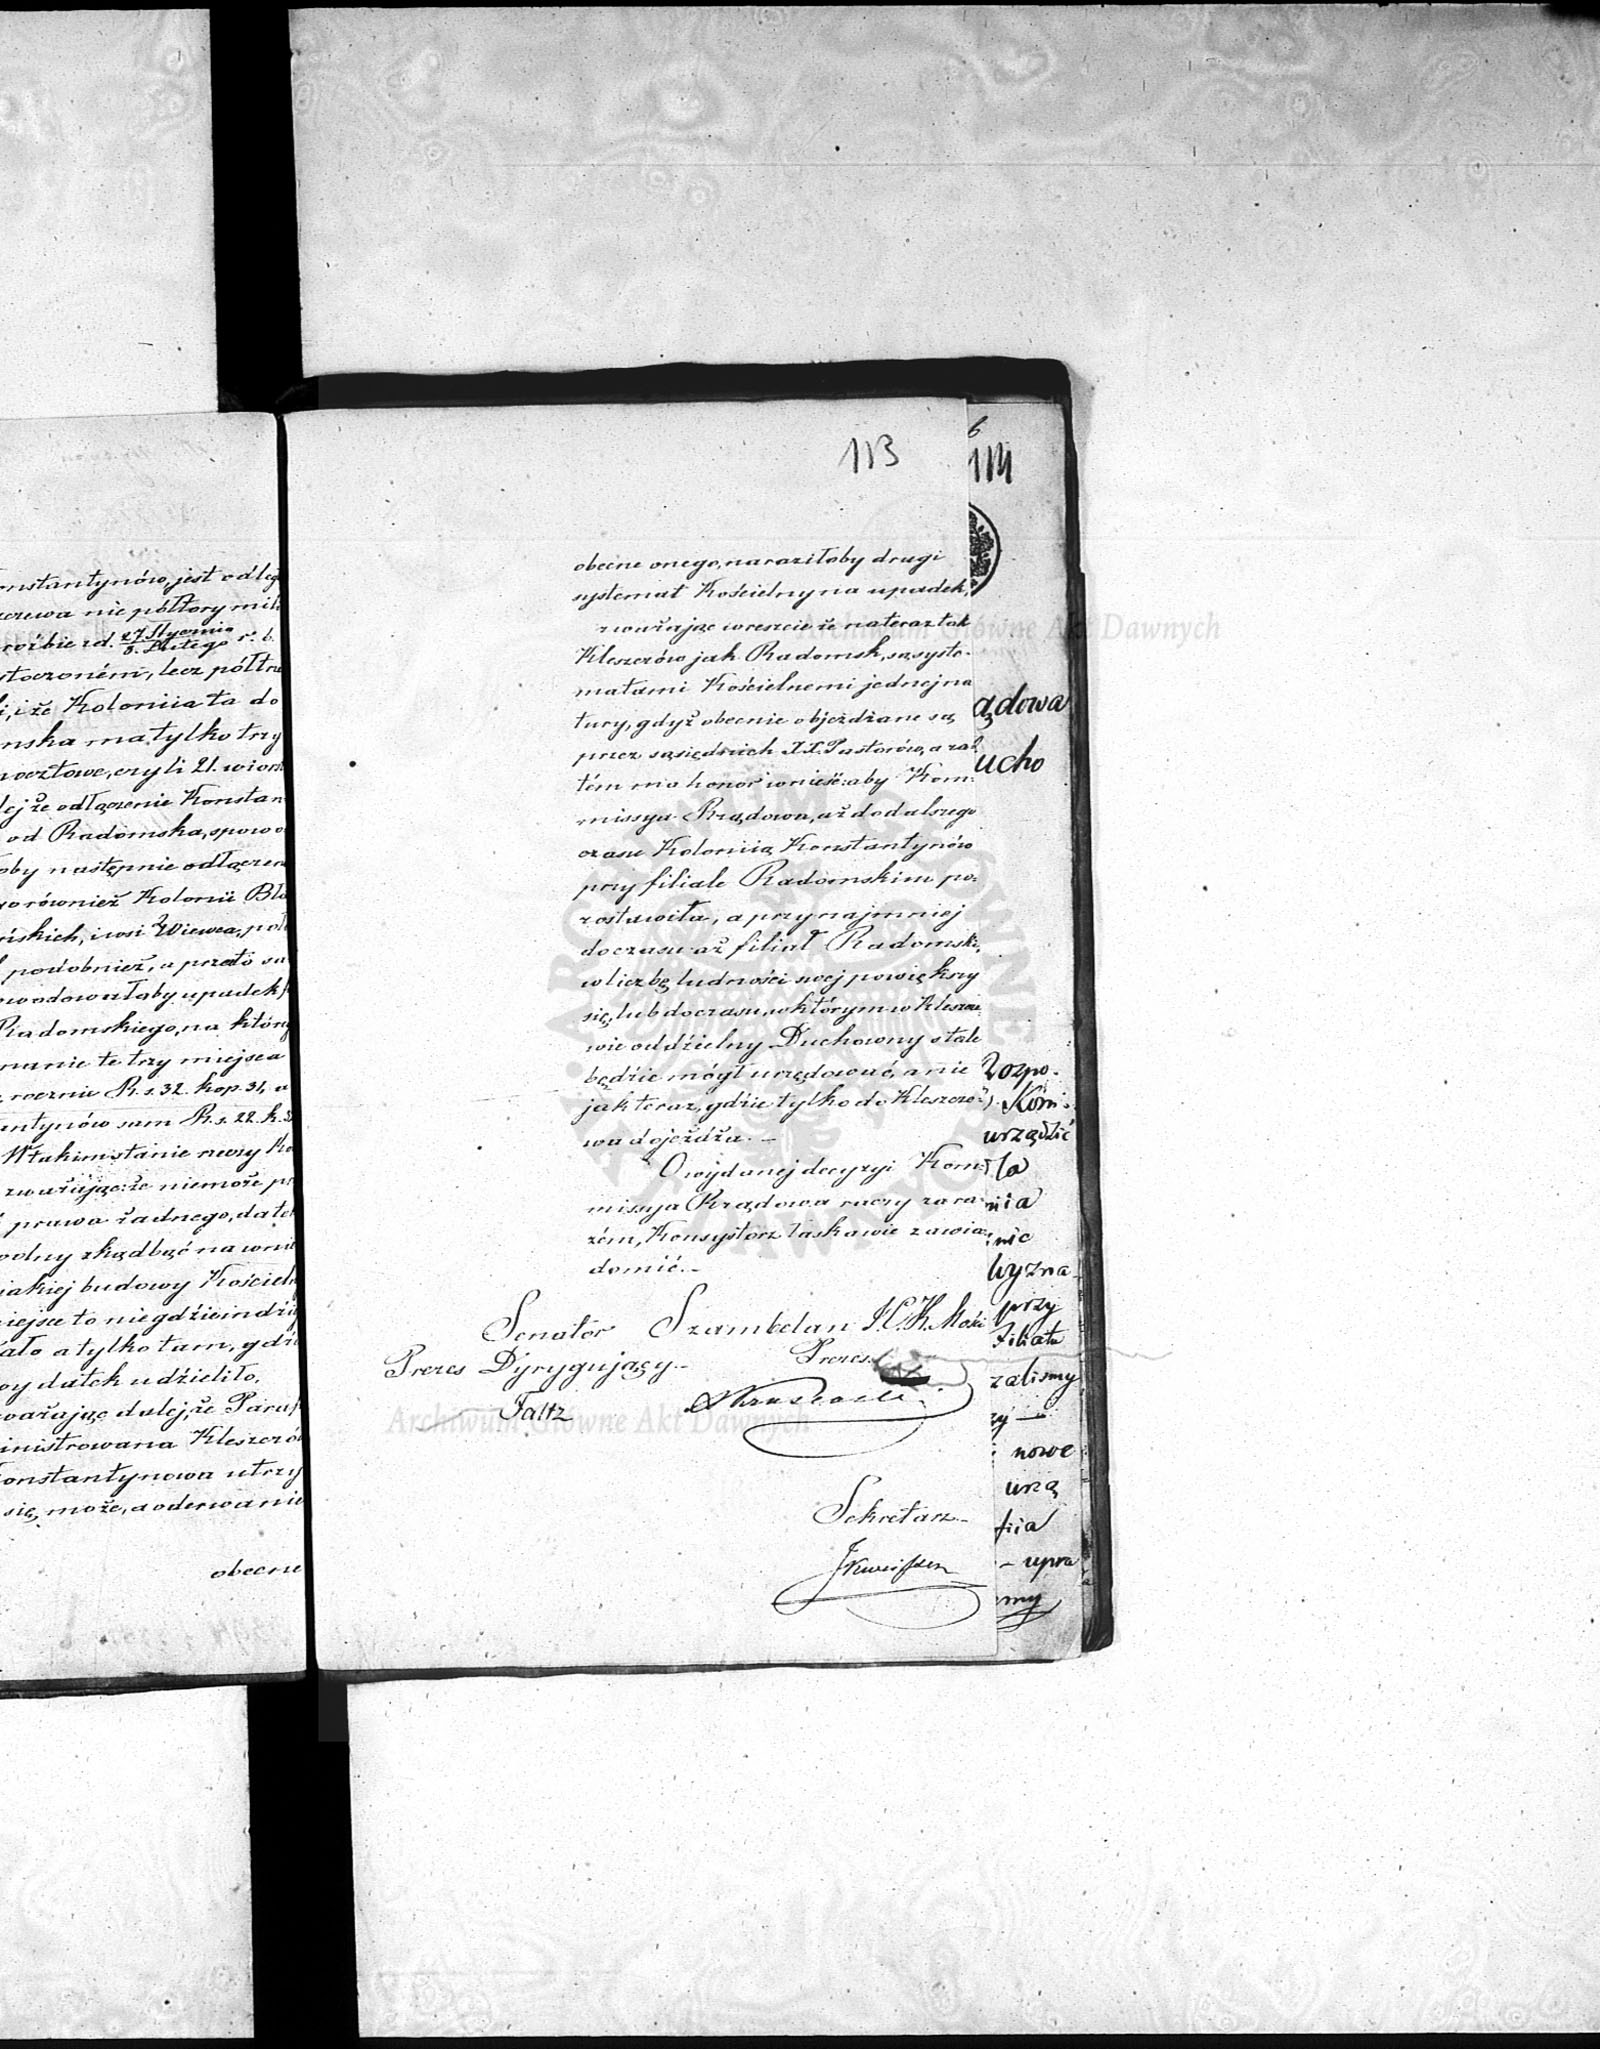 onstantynów, jest odleg
szowa nie półtory mili
rośbie z d. 27 Stycznia / 8. Lutego r. b.
toczoném, lecz półtrze
i, i że Koloniia ta do
mska ma tylko trzy
pocztowe, czyli 21. wiorst
lej że odłączenie Konstan
od Radomska, spowo
oby następnie odłączen
go również Kolonii Bło
ńskich, i wsi Wiewca, poł
podobnież, a przeto sa
owodowałaby upadek f
Radomskiego, na któr
manie te trzy miejsca
rocznie R. s. 32. kop. 31, a
antynów sam R. s. 22. k.
W takim stanie rzeczy Ko
zważając: że niemoże
prawa żadnego, datek
wolny zkądbąć na wnie
iakiej budowy Kościel
iejsce to niegdzieindzi
ało a tylko tam, gdzi
oy datek udzieliło,
ważając dalej, że Paraf
inistrowana Kleszczów
onstantynowa utrzy
się, może, a oderwanie
obecne
113
obecne onego, naraziłoby drugi
systemat Kościelny na upadek,
zważając wreszcie że na teraz tak
Kleszczów jak Radomsk, są syste-
matami Kościelnemi jednej na
tury, gdyż obecnie objeżdżane są
przez sąsiednich XX. Pastorów, a zat
tém ma honor wnieść: aby Kom-
missya Rządowa, aż do dalszego
czasu Koloniią Konstantynów
przy filiale Radomskim po-
zostawiła, a przynajmniej
do czasu aż filiał Radomski,
w liczbę ludności swej powiększy
się, lub do czasu, w którym w Kleszczo
wie oddzielny Duchowny stale
będzie mógł urzędować, a nie
jak teraz, gdzie tylko do Kleszczo-
wa dojeżdża. -
O wydanej decyzyi Kom-
missya Rządowa raczy zara-
zém, Konsystorz łaskawie zawia-
domić. -
Senator Szambelan J. C. K. Mości
Prezes Dyrygujący. - Prezes.
Faltz
Sekretarz. -
6
114
ądowa
ucho
Rozpo-
Kom-
urządzić
la
nia
nie
Wyzna-
przy
Filiału
zaliśmy
zy —
nowe
urzą
fiia
- upra
emy
Archiwum Główne Akt Dawnych
Archiwum Główne Akt Dawnych
ARCHIWUM GŁÓWNE AKT DAWNYCH